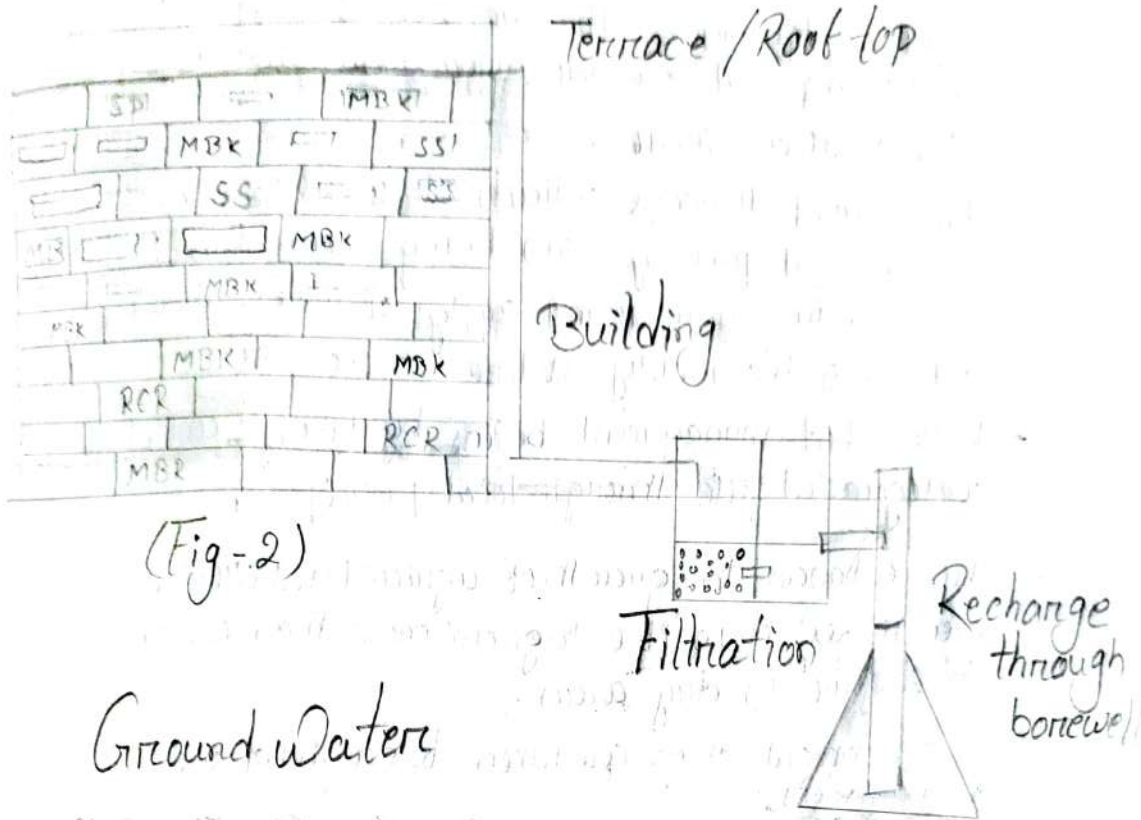 Terrace / Roof top
SD MBK
MBK SS
SS
MB MBK
MBK
MBK
MBK MBK
RCR
RCR
MBR
Building
(Fig-2)
Filtration
Recharge
through
borewell
Ground Water